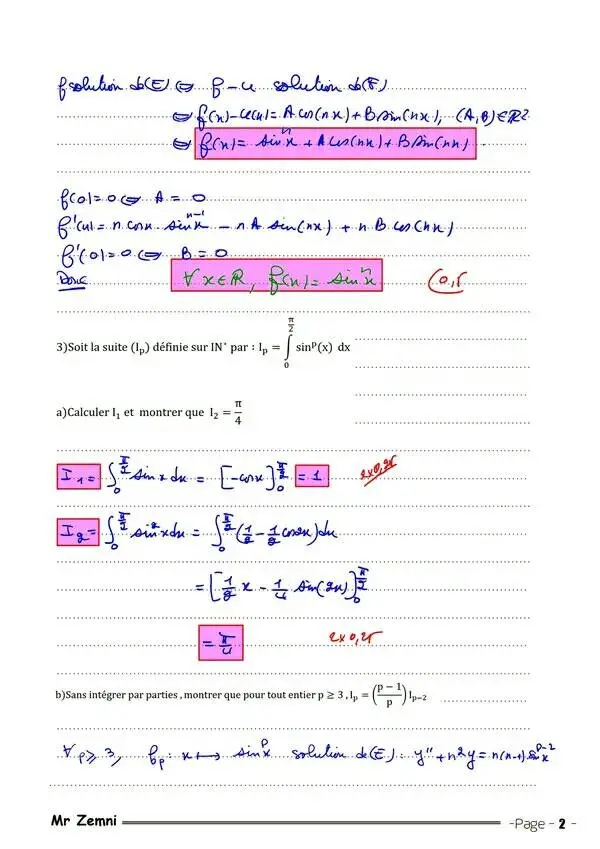 f solution de(E) ⇔ f - u solution de(F)
⇔ f(x) - u(x) = A cos(nx) + B sin(nx), (A,B) ∈ ℝ²
⇔ f(x) = sinⁿx + A cos(nx) + B sin(nx)
f(0) = 0 ⇔ A = 0
f'(x) = n cosx sinⁿ⁻¹x - nA sin(nx) + nB cos(nx)
f'(0) = 0 ⇔ B = 0
Donc ∀x∈ℝ, f(x) = sinⁿx (0,5
3)Soit la suite (Iₚ) définie sur IN* par : Iₚ = ∫₀^(π/2) sinᵖ(x) dx
a)Calculer I₁ et montrer que I₂ = π/4
I₁ = ∫₀^(π/2) sin x dx = [-cosx]₀^(π/2) = 1 2x0,25
I₂ = ∫₀^(π/2) sin²x dx = ∫₀^(π/2) (1/2 - 1/2 cos2x) dx
= [1/2 x - 1/4 sin(2x)]₀^(π/2)
= π/4 2x0,25
b)Sans intégrer par parties , montrer que pour tout entier p ≥ 3 , Iₚ = ((p − 1)/p) Iₚ₋₂
∀p ≥ 3, fₚ : x ↦ sinᵖx solution de(E) : y'' + n²y = n(n-1) sinᵖ⁻²x
Mr Zemni -Page - 2 -